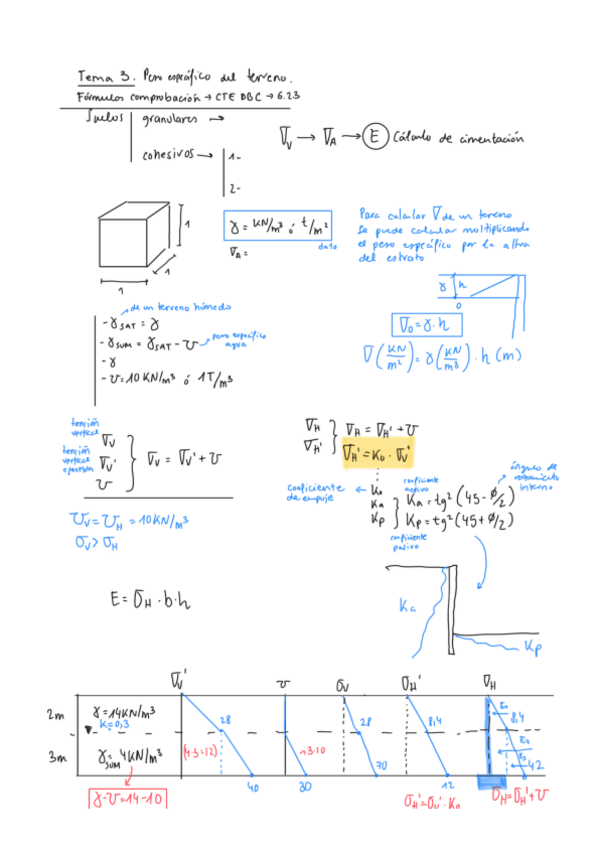 Tema 3. Peso específico del terreno.
Fórmulas comprobación → CTE DBC → 6.23
Suelos granulares →
cohesivos → 1-
2-
σv → σA → E Cálculo de cimentación
1
1
1
γ = KN/m³ ó t/m²
dato
σA =
Para calcular σ de un terreno
se puede calcular multiplicando
el peso específico por la altura
del estrato
γ h
0
σ0 = γ·h
σ (KN/m²) = γ (KN/m³) · h (m)
de un terreno húmedo
- γSAT = γ
- γSUM = γSAT - υ → peso específico agua
- γ
- υ = 10 KN/m³ ó 1T/m³
tensión vertical σv
tensión vertical efectiva σv'
υ
σv = σv' + υ
υv = υH = 10KN/m³
σv > σH
σH
σH'
σH = σH' + υ
σH' = K0 · σv'
coeficiente de empuje ← K0
Ka
Kp
coeficiente activo
Ka = tg² (45 - ø/2)
Kp = tg² (45 + ø/2)
coeficiente pasivo
ángulo de rozamiento interno
E = σH · b · h
Ka
Kp
σv' υ σv σH' σH
2m γ = 14KN/m³
K = 0,3
28 28 8,4 E1 8,4
3m γSUM = 4KN/m³
(4·3=12) 3·10 E2 E3
40 30 70 12 42
γ-υ = 14-10
σH' = σv' · K0
σH = σH' + υ